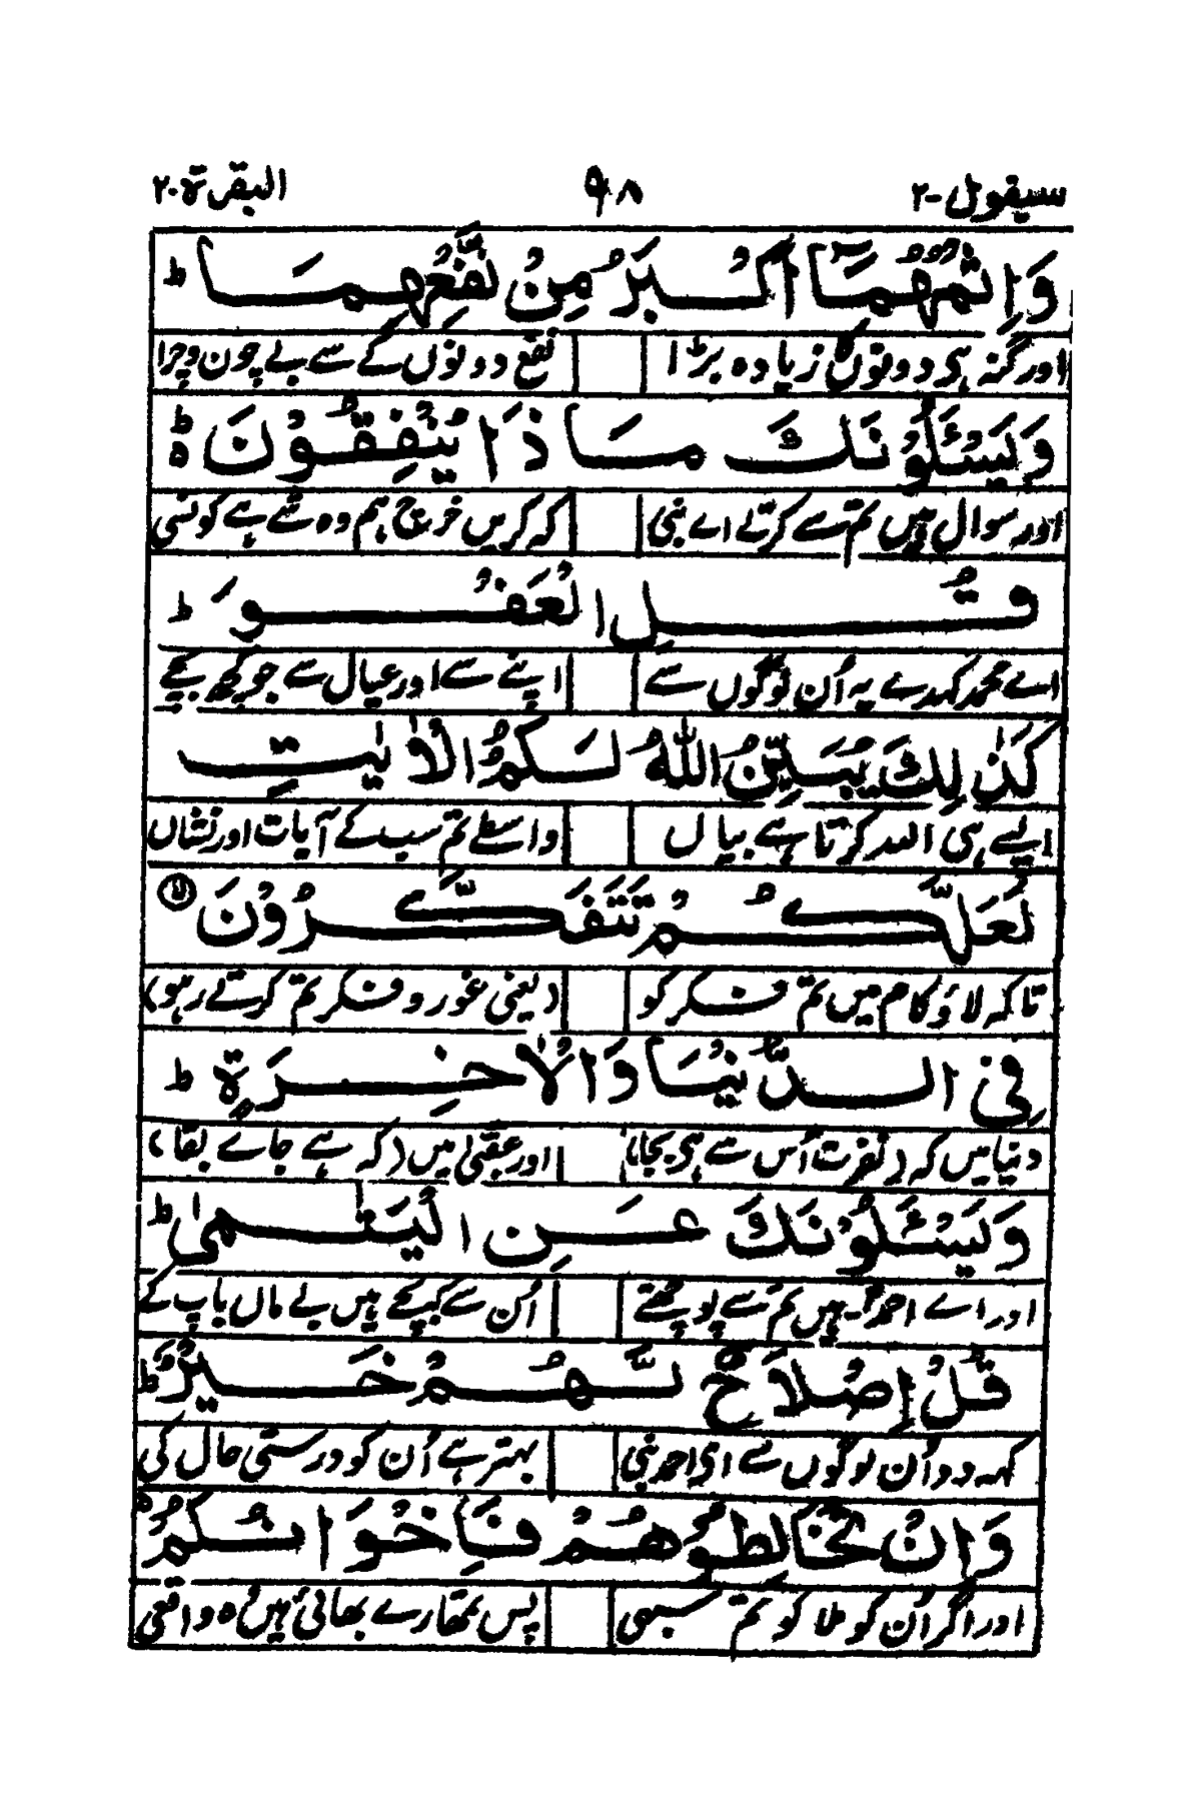 سیقول-۲ ۹۸ البقرۃ-۲
وَاِثْمُهُمَآ اَكْبَرُ مِنْ نَّفْعِهِمَا ط
اور گنہ ہی دونوں کا زیادہ بڑا نفع دونوں کے سے بے چون و چرا
وَيَسْئَلُوْنَكَ مَاذَا يُنْفِقُوْنَ ە ط
اور سوال ہیں تم سے کرتے اے نبی کہ کریں خرچ ہم وہ شے ہے کونسی
قُلِ الْعَفْوَ ط
اے محمد کہدے یہ اُن لوگوں سے اپنے سے اور عیال سے جو کچھ بچے
كَذٰلِكَ يُبَيِّنُ اللّٰهُ لَكُمُ الْاٰيٰتِ
ایسے ہی اللہ کرتا ہے بیاں واسطے تم سب کے آیات اور نشاں
لَعَلَّكُمْ تَتَفَكَّرُوْنَ
تاکہ لاؤ کام میں تم فکر کو (یعنی غور و فکر تم کرتے رہو)
فِى الدُّنْيَا وَالْاٰخِرَةِ ط
دنیا میں کہ (نفرت اُس سے ہی بجا) اور عقبیٰ میں (کہ ہے جاے بقا)
وَيَسْئَلُوْنَكَ عَنِ الْيَتٰمٰى ط
اور اے احمدؐ ہیں تم سے پوچھتے اُن سے کہیے ہیں بے ماں باپ کے
قُلْ اِصْلَاحٌ لَّهُمْ خَيْرٌ ط
کہہ دو اُن لوگوں سے ای احمد نبی بہتر ہے اُن کو درستی حال کی
وَاِنْ تُخَالِطُوْهُمْ فَاِخْوَانُكُمْ
اور اگر اُن کو ملا لو تم سبھی پس تمھارے بھائی ہیں وہ واقعی